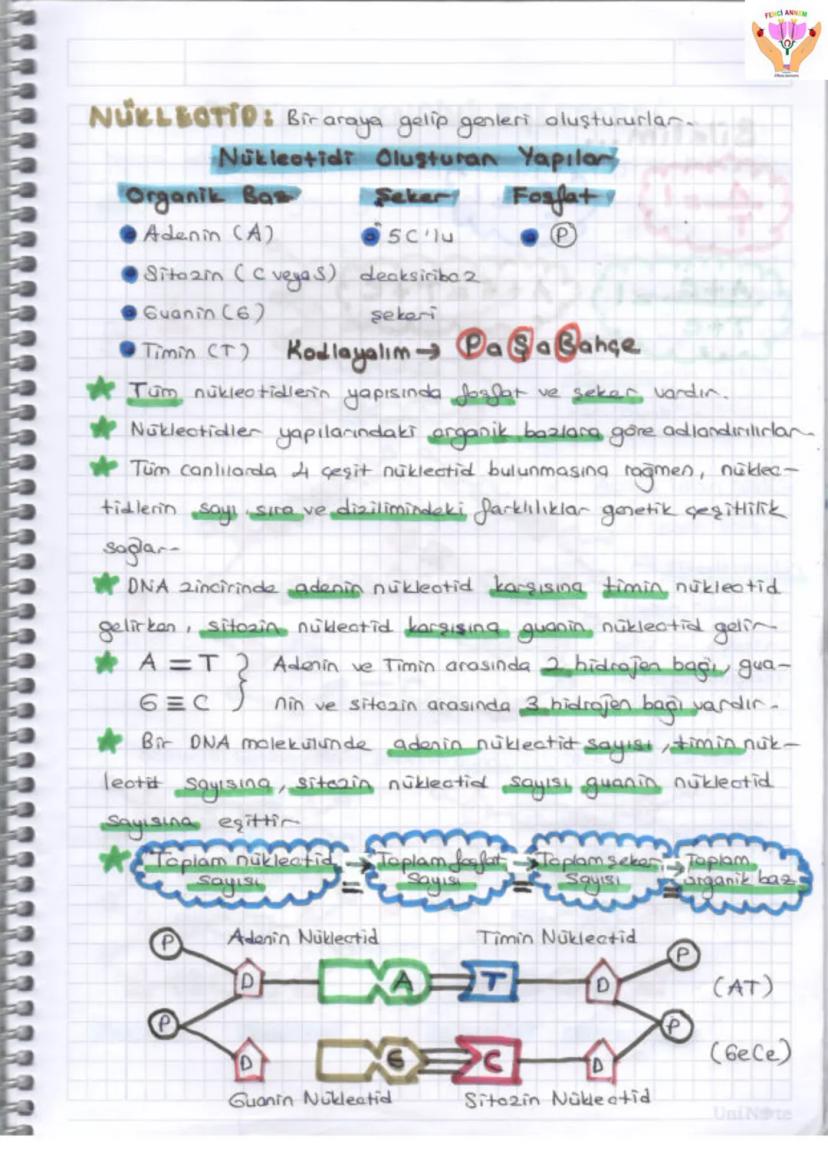 FENCİ ANNEM
NÜKLEOTİD: Bir araya gelip genleri oluştururlar.
Nükleotidi Oluşturan Yapılar
Organik Baz Şeker Fosfat
Adenin (A) 5C'lu P
Sitozin (C veya S) deoksiriboz
Guanin (G) şekeri
Timin (T) Kodlayalım → PaŞaBahçe
Tüm nükleotidlerin yapısında fosfat ve şeker vardır.
Nükleotidler yapılarındaki organik bazlara göre adlandırılırlar
Tüm canlılarda 4 çeşit nükleotid bulunmasına rağmen, nükleo-
tidlerin sayı, sıra ve dizilimindeki farklılıklar genetik çeşitlilik
sağlar.
DNA zincirinde adenin nükleotid karşısına timin nükleotid
gelirken, sitozin nükleotid karşısına guanin nükleotid gelir.
A = T } Adenin ve Timin arasında 2 hidrojen bağı, gua-
G ≡ C nin ve sitozin arasında 3 hidrojen bağı vardır.
Bir DNA molekülünde adenin nükleotit sayısı, timin nük-
leotit sayısına, sitozin nükleotid sayısı guanin nükleotid
sayısına eşittir
Toplam nükleotid → Toplam fosfat → Toplam şeker → Toplam
sayısı = sayısı = sayısı = organik baz
Adenin Nükleotid Timin Nükleotid
P P
D A T D (AT)
P P
D G C D (GeCe)
Guanin Nükleotid Sitozin Nükleotid
UniNote